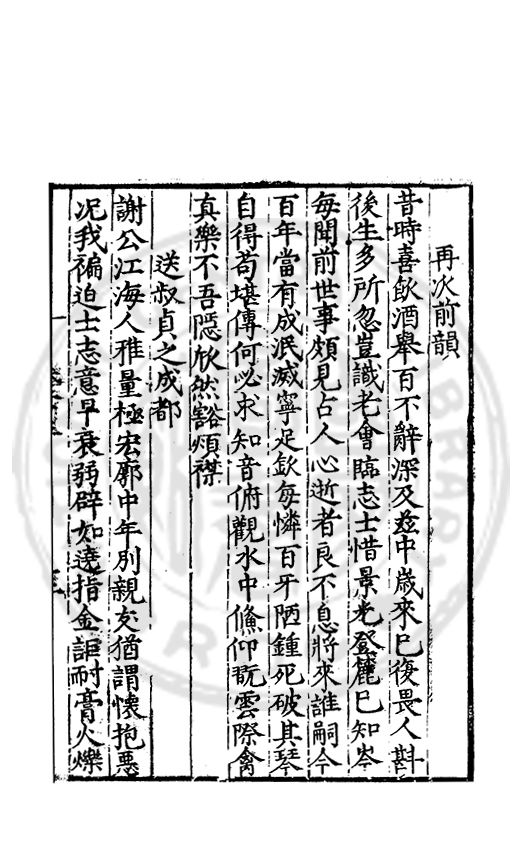 再次前韻
昔時喜飲酒舉百不辭深及玆中歲來已復畏人斟
後生多所忽豈識老會臨志士惜景光登麓已知岑
每聞前世事頗見古人心逝者良不息將來誰嗣今
百年當有成泯滅寧足欽每憐百牙陋鍾死破其琴
自得苟堪傳何必求知音俯觀水中鯈仰翫雲際禽
真樂不吾隱欣然豁煩襟
送叔貞之成都
謝公江海人雅量極宏廓中年別親友猶謂懷抱惡
况我褊迫士志意早衰弱辟如遶指金詎耐膏火爍